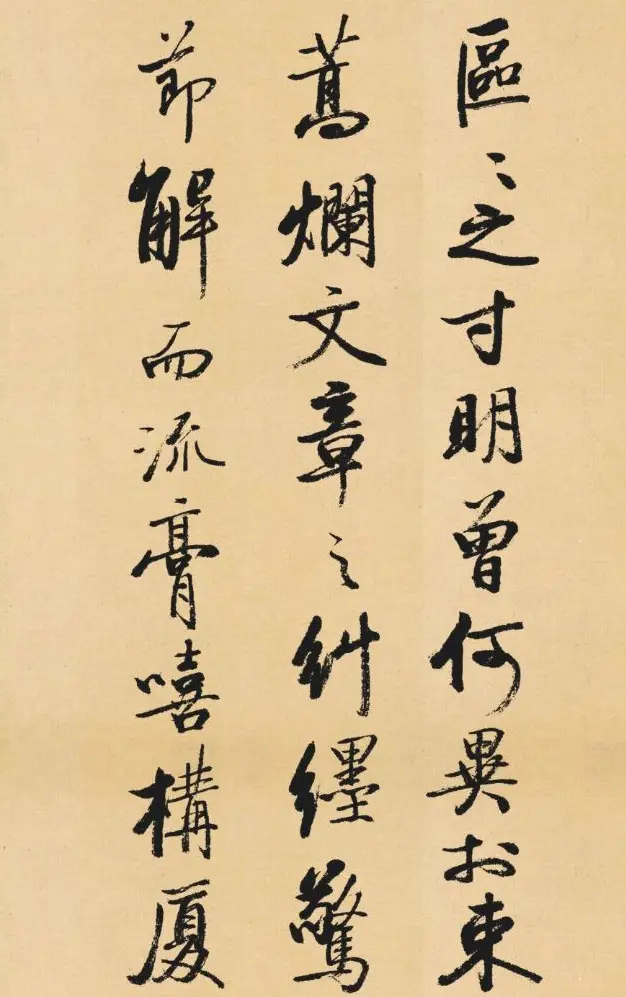 區〻之寸明曾何異於束
蒿爛文章之糾纆驚
節解而流膏嘻構厦